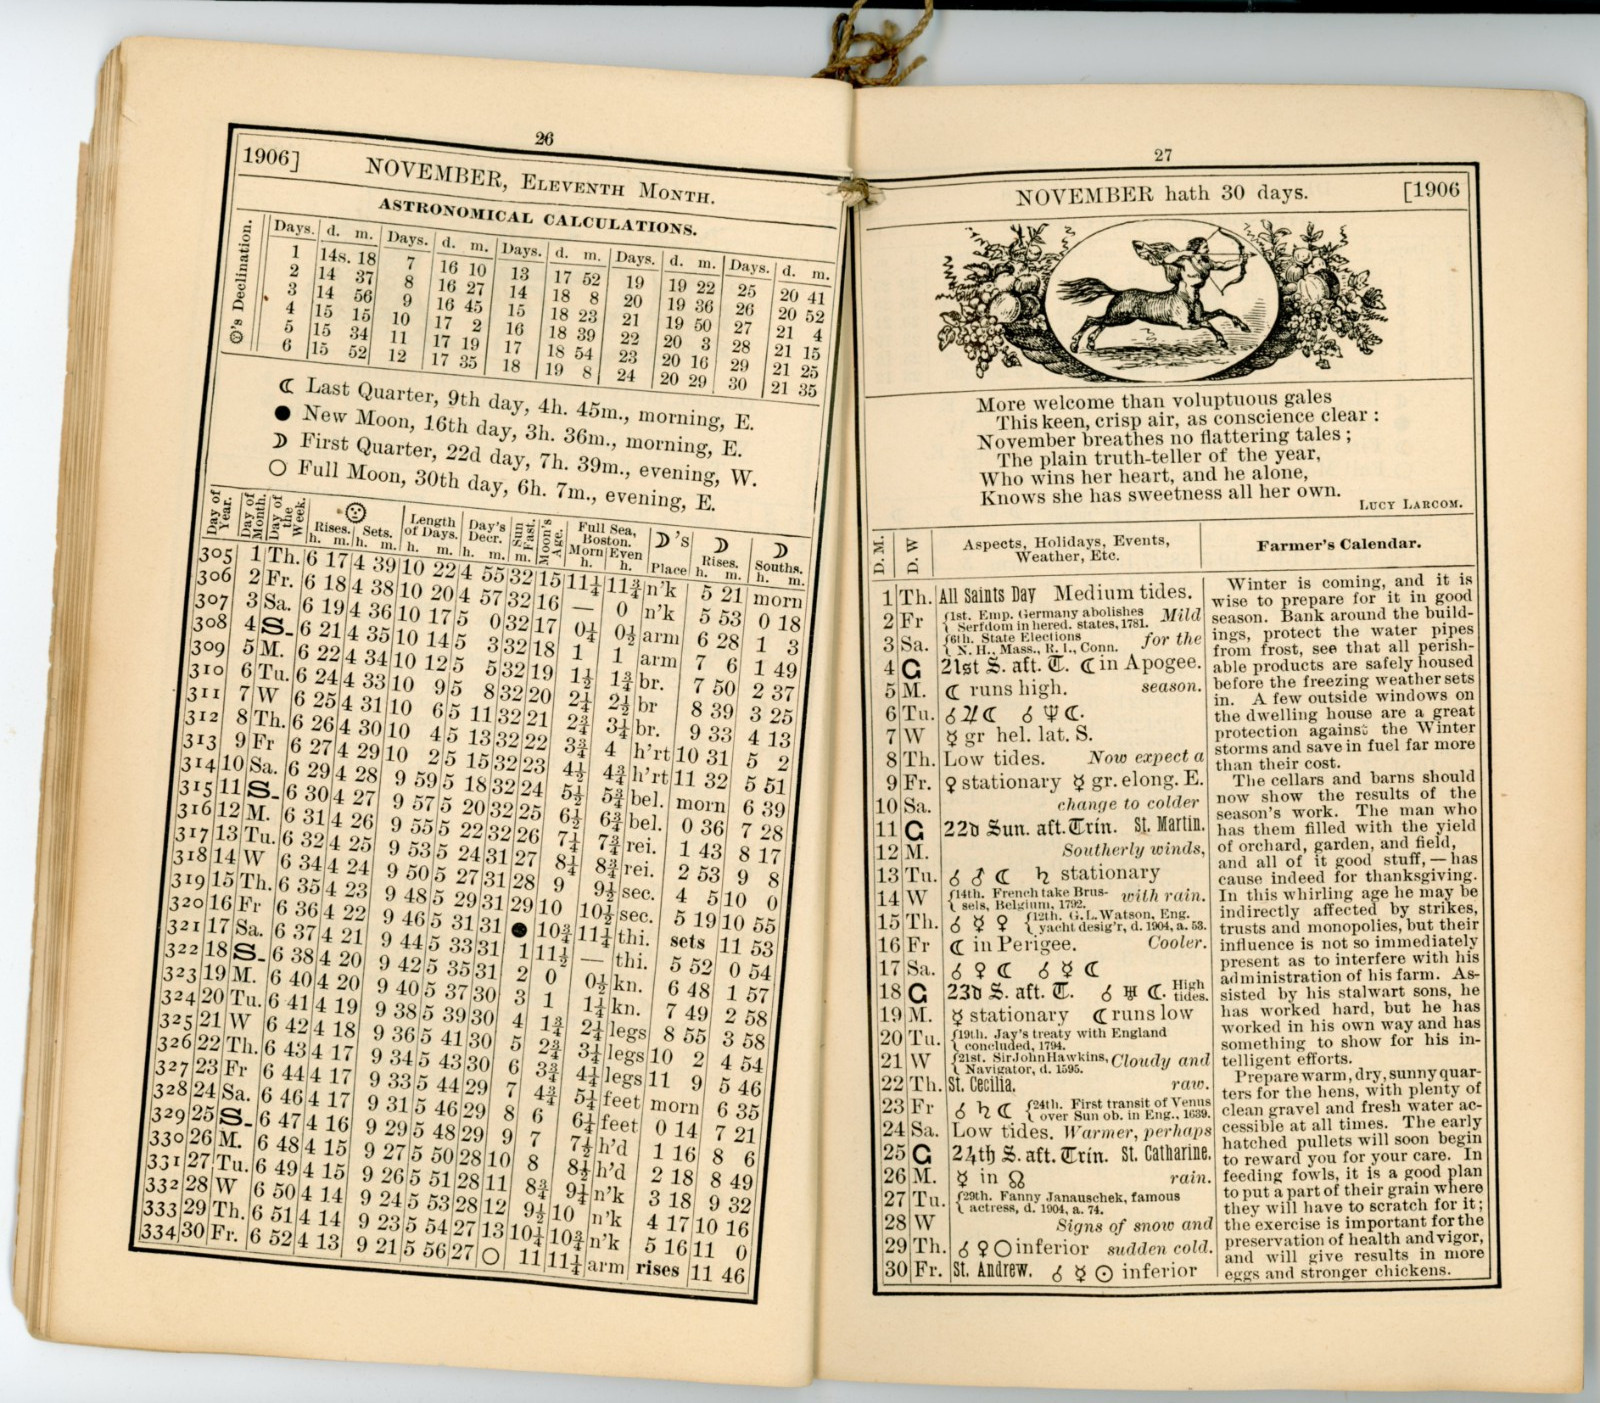 26
1906] NOVEMBER, ELEVENTH MONTH.
ASTRONOMICAL CALCULATIONS.
☉'s Declination.
Days. d. m. Days. d. m. Days. d. m. Days. d. m. Days. d. m.
1 14s. 18 7 16 10 13 17 52 19 19 22 25 20 41
2 14 37 8 16 27 14 18 8 20 19 36 26 20 52
3 14 56 9 16 45 15 18 23 21 19 50 27 21 4
4 15 15 10 17 2 16 18 39 22 20 3 28 21 15
5 15 34 11 17 19 17 18 54 23 20 16 29 21 25
6 15 52 12 17 35 18 19 8 24 20 29 30 21 35
☾ Last Quarter, 9th day, 4h. 45m., morning, E.
● New Moon, 16th day, 3h. 36m., morning, E.
☽ First Quarter, 22d day, 7h. 39m., evening, W.
○ Full Moon, 30th day, 6h. 7m., evening, E.
Day of Year. Day of Month. Day of the Week. ☉ Rises. h. m. Sets. h. m. Length of Days. h. m. Day's Decr. h. m. Sun Fast. m. Moon's Age. Full Sea, Boston. Morn h. Even h. ☽'s Place ☽ Rises. h. m. ☽ Souths. h. m.
305 1 Th. 6 17 4 39 10 22 4 55 32 15 11¼ 11¾ n'k 5 21 morn
306 2 Fr. 6 18 4 38 10 20 4 57 32 16 — 0 n'k 5 53 0 18
307 3 Sa. 6 19 4 36 10 17 5 0 32 17 0¼ 0½ arm 6 28 1 3
308 4 S. 6 21 4 35 10 14 5 3 32 18 1 1 arm 7 6 1 49
309 5 M. 6 22 4 34 10 12 5 5 32 19 1½ 1¾ br. 7 50 2 37
310 6 Tu. 6 24 4 33 10 9 5 8 32 20 2¼ 2½ br 8 39 3 25
311 7 W 6 25 4 31 10 6 5 11 32 21 2¾ 3¼ br. 9 33 4 13
312 8 Th. 6 26 4 30 10 4 5 13 32 22 3¾ 4 h'rt 10 31 5 2
313 9 Fr 6 27 4 29 10 2 5 15 32 23 4½ 4¾ h'rt 11 32 5 51
314 10 Sa. 6 29 4 28 9 59 5 18 32 24 5½ 5¾ bel. morn 6 39
315 11 S. 6 30 4 27 9 57 5 20 32 25 6½ 6¾ bel. 0 36 7 28
316 12 M. 6 31 4 26 9 55 5 22 32 26 7¼ 7¾ rei. 1 43 8 17
317 13 Tu. 6 32 4 25 9 53 5 24 31 27 8¼ 8¾ rei. 2 53 9 8
318 14 W 6 34 4 24 9 50 5 27 31 28 9 9½ sec. 4 5 10 0
319 15 Th. 6 35 4 23 9 48 5 29 31 29 10 10½ sec. 5 19 10 55
320 16 Fr 6 36 4 22 9 46 5 31 31 ● 10¾ 11¼ thi. sets 11 53
321 17 Sa. 6 37 4 21 9 44 5 33 31 1 11½ — thi. 5 52 0 54
322 18 S. 6 38 4 20 9 42 5 35 31 2 0 0½ kn. 6 48 1 57
323 19 M. 6 40 4 20 9 40 5 37 30 3 1 1¼ kn. 7 49 2 58
324 20 Tu. 6 41 4 19 9 38 5 39 30 4 1¾ 2¼ legs 8 55 3 58
325 21 W 6 42 4 18 9 36 5 41 30 5 2¾ 3¼ legs 10 2 4 54
326 22 Th. 6 43 4 17 9 34 5 43 30 6 3¾ 4¼ legs 11 9 5 46
327 23 Fr 6 44 4 17 9 33 5 44 29 7 4¾ 5¼ feet morn 6 35
328 24 Sa. 6 46 4 17 9 31 5 46 29 8 6 6¼ feet 0 14 7 21
329 25 S. 6 47 4 16 9 29 5 48 29 9 7 7½ h'd 1 16 8 6
330 26 M. 6 48 4 15 9 27 5 50 28 10 8 8½ h'd 2 18 8 49
331 27 Tu. 6 49 4 15 9 26 5 51 28 11 8¾ 9¼ n'k 3 18 9 32
332 28 W 6 50 4 14 9 24 5 53 28 12 9½ 10 n'k 4 17 10 16
333 29 Th. 6 51 4 14 9 23 5 54 27 13 10¼ 10¾ n'k 5 16 11 0
334 30 Fr. 6 52 4 13 9 21 5 56 27 ○ 11 11¼ arm rises 11 46
27
NOVEMBER hath 30 days. [1906
More welcome than voluptuous gales
This keen, crisp air, as conscience clear :
November breathes no flattering tales ;
The plain truth-teller of the year,
Who wins her heart, and he alone,
Knows she has sweetness all her own.
LUCY LARCOM.
D. M. D. W Aspects, Holidays, Events, Weather, Etc.
1 Th. All Saints Day Medium tides.
2 Fr {1st. Emp. Germany abolishes Serfdom in hered. states, 1781. Mild
3 Sa. {6th. State Elections N. H., Mass., R. I., Conn. for the
4 G 21st S. aft. T. ☾ in Apogee.
5 M. ☾ runs high. season.
6 Tu. ☌ ♃ ☾ ☌ ♆ ☾.
7 W ☿ gr hel. lat. S.
8 Th. Low tides. Now expect a
9 Fr. ♀ stationary ☿ gr. elong. E.
10 Sa. change to colder
11 G 22d Sun. aft. Trin. St. Martin.
12 M. Southerly winds,
13 Tu. ☌ ♂ ☾ ♄ stationary
14 W {14th. French take Brussels, Belgium, 1792. with rain.
15 Th. ☌ ☿ ♀ {12th. G. L. Watson, Eng. yacht desig'r, d. 1904, a. 53.
16 Fr ☾ in Perigee. Cooler.
17 Sa. ☌ ♀ ☾ ☌ ☿ ☾
18 G 23d S. aft. T. ☌ ♅ ☾. High tides.
19 M. ☿ stationary ☾ runs low
20 Tu. {19th. Jay's treaty with England concluded, 1794.
21 W {21st. Sir John Hawkins, Navigator, d. 1595. Cloudy and
22 Th. St. Cecilia. raw.
23 Fr ☌ ♄ ☾ {24th. First transit of Venus over Sun ob. in Eng., 1639.
24 Sa. Low tides. Warmer, perhaps
25 G 24th S. aft. Trin. St. Catharine.
26 M. ☿ in ☊ rain.
27 Tu. {29th. Fanny Janauschek, famous actress, d. 1904, a. 74.
28 W Signs of snow and
29 Th. ☌ ♀ ☉ inferior sudden cold.
30 Fr. St. Andrew. ☌ ☿ ☉ inferior
Farmer's Calendar.
Winter is coming, and it is
wise to prepare for it in good
season. Bank around the build-
ings, protect the water pipes
from frost, see that all perish-
able products are safely housed
before the freezing weather sets
in. A few outside windows on
the dwelling house are a great
protection against the Winter
storms and save in fuel far more
than their cost.
The cellars and barns should
now show the results of the
season's work. The man who
has them filled with the yield
of orchard, garden, and field,
and all of it good stuff, — has
cause indeed for thanksgiving.
In this whirling age he may be
indirectly affected by strikes,
trusts and monopolies, but their
influence is not so immediately
present as to interfere with his
administration of his farm. As-
sisted by his stalwart sons, he
has worked hard, but he has
worked in his own way and has
something to show for his in-
telligent efforts.
Prepare warm, dry, sunny quar-
ters for the hens, with plenty of
clean gravel and fresh water ac-
cessible at all times. The early
hatched pullets will soon begin
to reward you for your care. In
feeding fowls, it is a good plan
to put a part of their grain where
they will have to scratch for it ;
the exercise is important for the
preservation of health and vigor,
and will give results in more
eggs and stronger chickens.